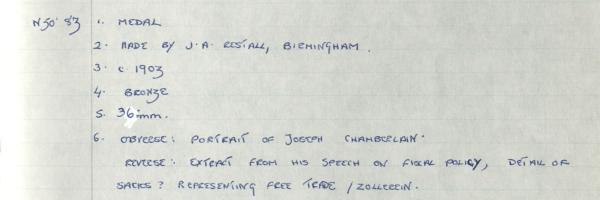 N30' 83 1. MEDAL
2. MADE BY J.A. RESTALL, BIRMINGHAM.
3. c 1903
4. BRONZE
5. 36mm.
6. OBVERSE: PORTRAIT OF JOSEPH CHAMBERLAIN.
REVERSE: EXTRACT FROM HIS SPEECH ON FISCAL POLICY, DETAIL OF
SACKS? REPRESENTING FREE TRADE / ZOLLVEREIN.